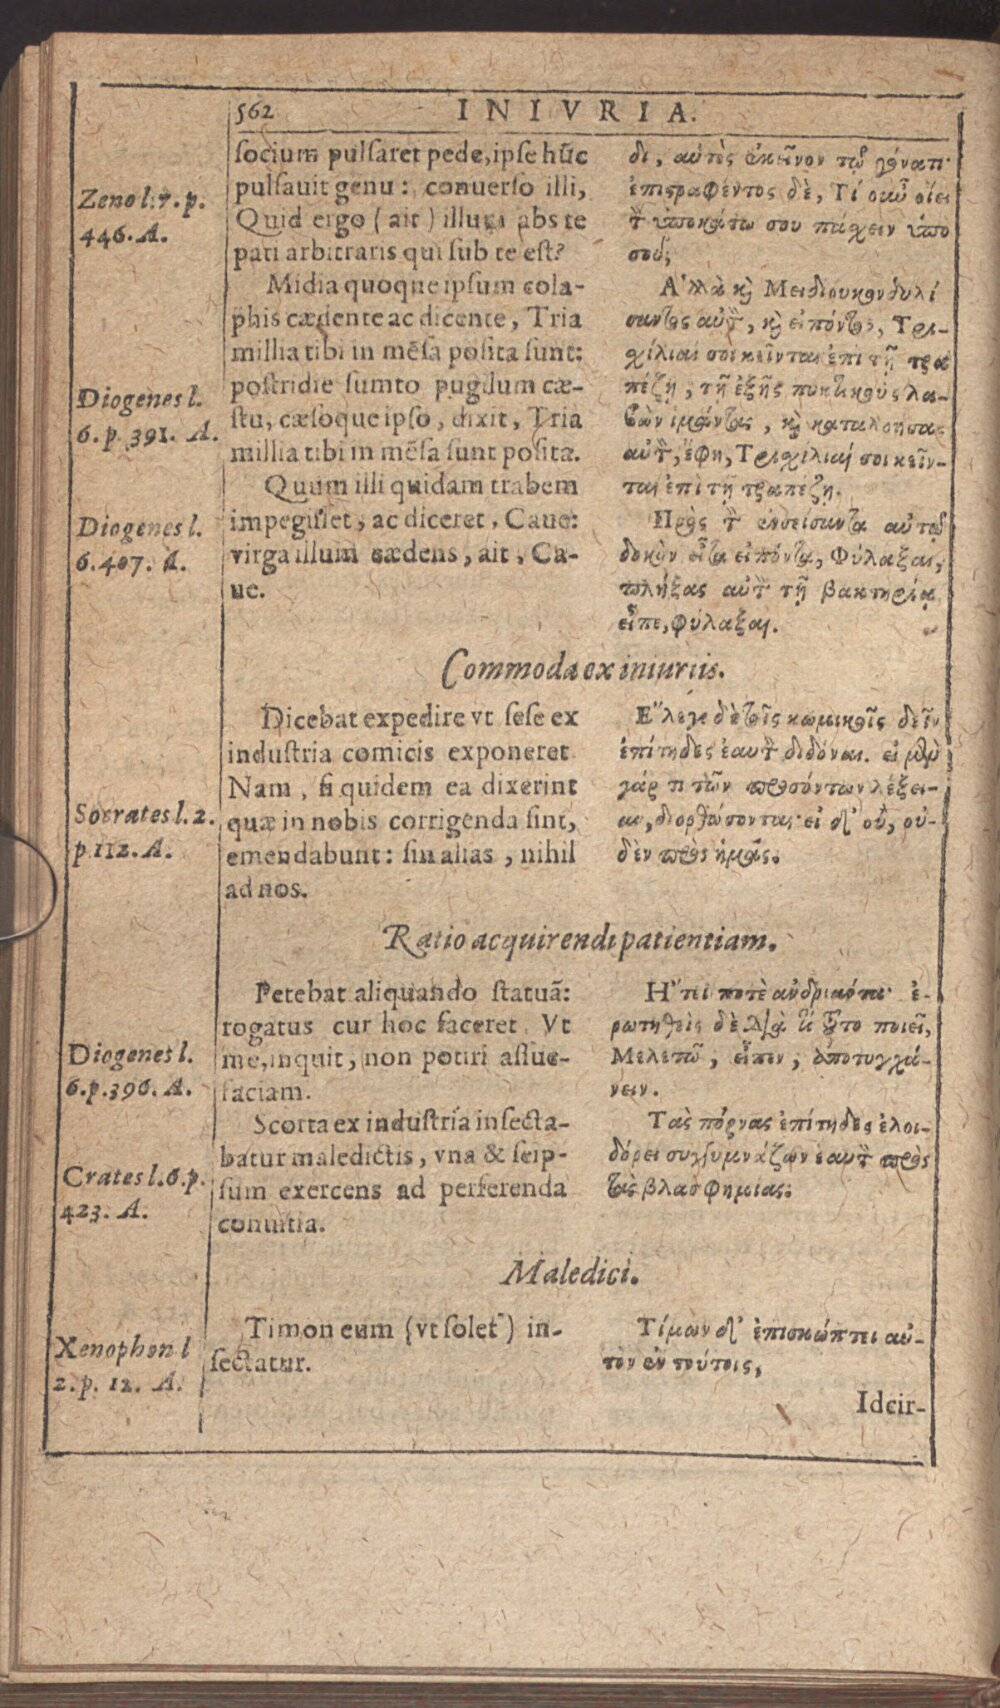 562
INIVRIA.
socium pulsaret pede, ipse hũc
pulsauit genu: conuerso illi,
Quid ergo (ait) illum abs te
pati arbitraris qui sub te est?
Zeno l. 7. p.
446. A.
Midia quoque ipsum cola-
phis cædente ac dicente, Tria
millia tibi in mẽsa posita sunt:
postridie sumto pugilum cæ-
stu, cæsoque ipso, dixit, Tria
millia tibi in mẽsa sunt posita.
Diogenes l.
6. p. 391. A.
Quum illi quidam trabem
impegisset, ac diceret, Caue:
virga illum cædens, ait, Ca-
ue.
Diogenes l.
6. 407. A.
δι, αυτὸς ἐκεῖνον τῷ γόνατι·
ἐπιστραφέντος δὲ, Τί οὖν οἴει
τὸν ὑποκάτω σου πάσχειν ὑπὸ
σοῦ;
Ἀλλὰ καὶ Μειδίου κονδυλί
σαντος αὐτὸν, καὶ εἰπόντος, Τρισ-
χίλιαι σοι κεῖνται ἐπὶ τῇ τρα
πέζῃ, τῇ ἑξῆς πυκτικοὺς λα-
βὼν ἱμάντας, καὶ καταλοήσας
αὐτὸν, ἔφη, Τρισχίλιαί σοι κεῖν-
ται ἐπὶ τῇ τραπέζῃ.
Πρὸς τὸν ἐνσείσαντα αὐτῷ
δοκὸν εἶτα εἰπόντα, Φύλαξαι,
πλήξας αὐτὸν τῇ βακτηρίᾳ
εἶπε, φύλαξαι.
Commoda ex iniuriis.
Dicebat expedire vt sese ex
industria comicis exponeret
Nam, si quidem ea dixerint
quæ in nobis corrigenda sint,
emendabunt: sin alias, nihil
ad nos.
Socrates l. 2.
p. 112. A.
Ἔλεγε δὲ τοῖς κωμικοῖς δεῖν
ἐπίτηδες ἑαυτὸν διδόναι. εἰ μὲν
γάρ τι τῶν προσόντων λέξει-
αν, διορθώσονται· εἰ δ' οὔ, οὐ-
δὲν πρὸς ἡμᾶς.
Ratio acquirendi patientiam.
Petebat aliquando statuã:
rogatus cur hoc faceret, Vt
me, inquit, non potiri assue-
faciam.
Diogenes l.
6. p. 396. A.
Scorta ex industria insecta-
batur maledictis, vna & seip-
sum exercens ad perferenda
conuitia.
Crates l. 6. p.
423. A.
Ἤτει ποτὲ ἀνδριάντα· ἐ-
ρωτηθεὶς δὲ διὰ τί τοῦτο ποιεῖ,
Μελετῶ, εἶπεν, ἀποτυγχά-
νειν.
Τὰς πόρνας ἐπίτηδες ἐλοι-
δόρει συγγυμνάζων ἑαυτὸν πρὸς
τὰς βλασφημίας.
Maledici.
Timon eum (vt solet) in-
sectatur.
Xenophon l
2. p. 12. A.
Τίμων δ' ἐπισκώπτει αὐ-
τὸν ἐν τούτοις,
Idcir-